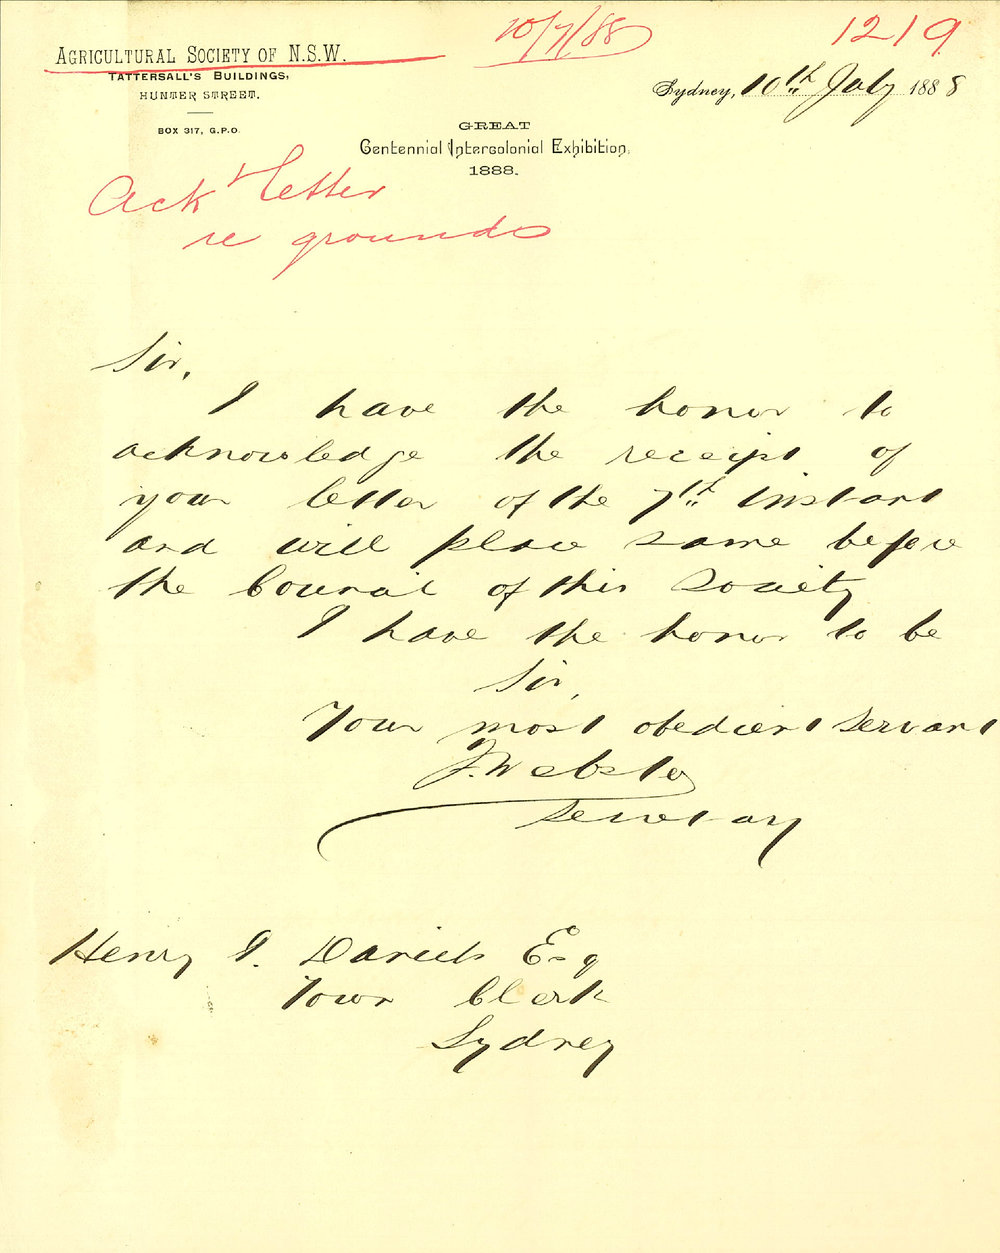 10/7/88
1219
AGRICULTURAL SOCIETY OF N.S.W.
TATTERSALL'S BUILDINGS,
HUNTER STREET.
BOX 317, G.P.O.
Sydney, 10th July 1888
GREAT
Centennial Intercolonial Exhibition,
1888.
Ack letter
re grounds
Sir,
I have the honor to
acknowledge the receipt of
your letter of the 7th instant
and will place same before
the Council of this Society
I have the honor to be
Sir,
Your most obedient servant
F. Webster
Secretary
Henry J. Daniels Esq
Town Clerk
Sydney